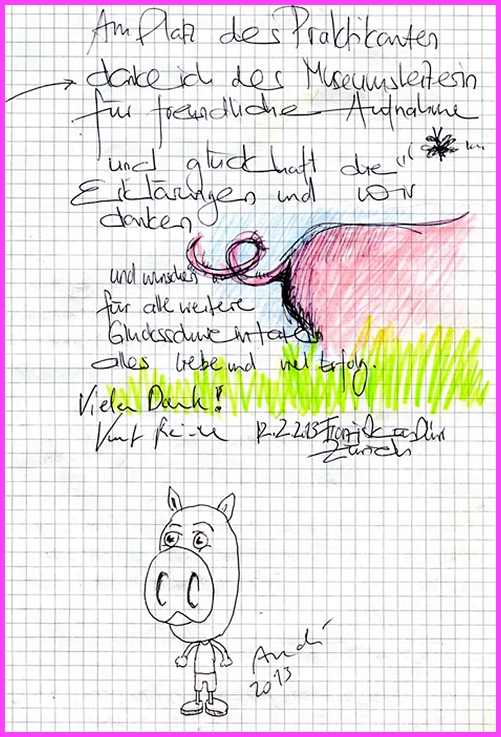 Am Platz des Praktikanten
danke ich der Museumsleiterin
für freundliche Aufnahme
und glückhaft die
Erklärungen und wir
danken
und wünschen
für alle weitere
alles Liebe und viel Erfolg.
Vielen Dank!
12.2.2013
Zürich
André
2013